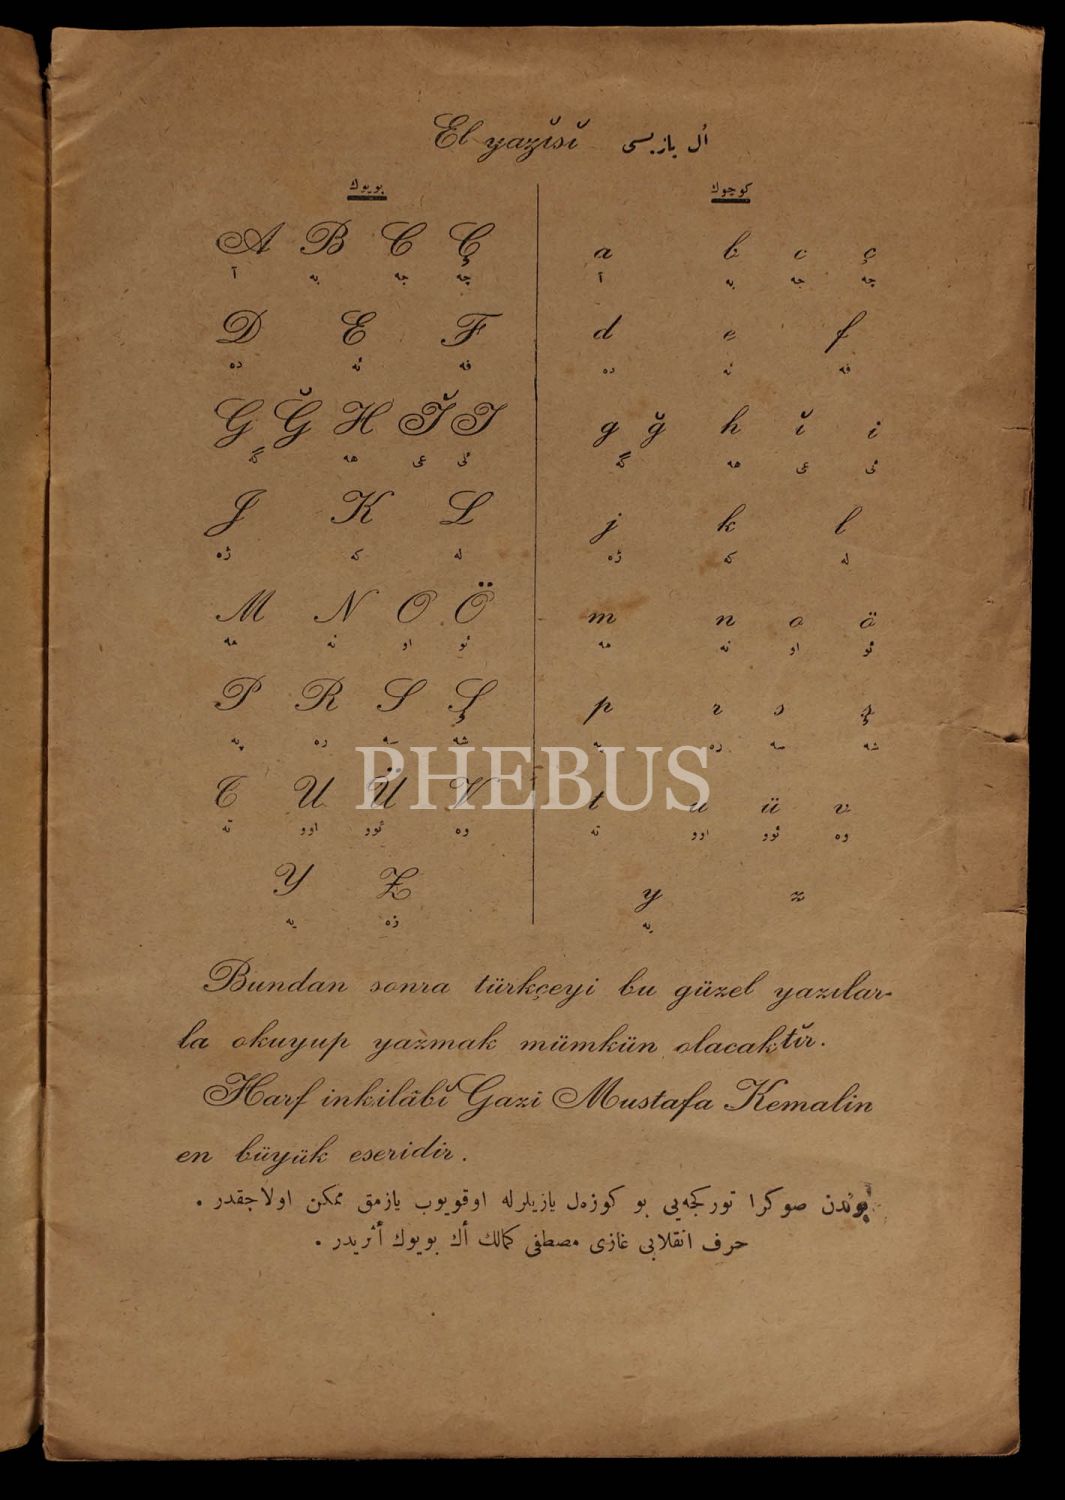 El yazĭsĭ اُل يازيسی
بويوك كوچوك
A B C Ç a b c ç
آ به جه چه آ به جه چه
D E F d e f
ده ئه فه ده ئه فه
G Ğ H Ĭ I g ğ h ĭ i
گه هه عی ئی گه هه عی ئی
J K L j k l
ژه كه له ژه كه له
M N O Ö m n o ö
مه نه او ئو مه نه او ئو
P R S Ş p r s ş
په ره سه شه په ره سه شه
T U Ü V t u ü v
ته اوو ئوو وه ته اوو ئوو وه
Y Z y z
يه زه يه
PHEBUS
Bundan sonra türkçeyi bu güzel yazılar-
la okuyup yazmak mümkün olacaktĭr.
Harf inkilâbĭ Gazi Mustafa Kemalin
en büyük eseridir.
بوندن صوكرا توركجه‌يی بو كوزه‌ل يازيلرله اوقويوب يازمق ممكن اولاجقدر .
حرف انقلابی غازی مصطفی كمالك أك بويوك أثريدر .